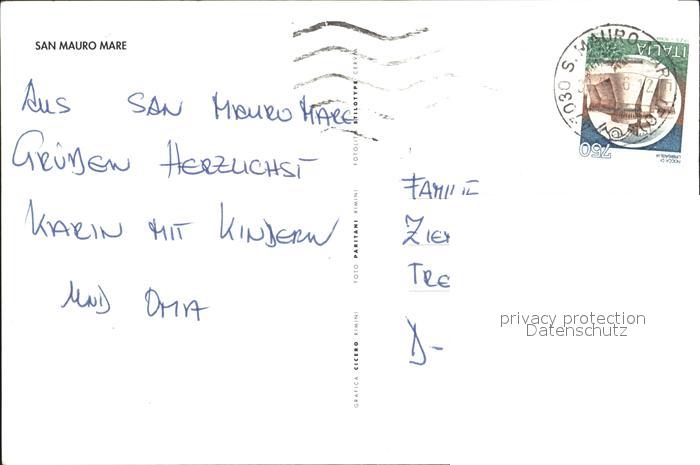 SAN MAURO MARE
AUS SAN MAURO MARE
GRÜßEN HERZLICHST
KARIN MIT KINDERN
UND OMA
FAMILIE
ZIE
TRE
D-
privacy protection
Datenschutz
GRAFICA CICERO RIMINI FOTO PARITANI RIMINI FOTOLITO STILOTYPE CERVIA
S. MAURO
ITALIA
750
ROCCA DI
URBISAGLIA